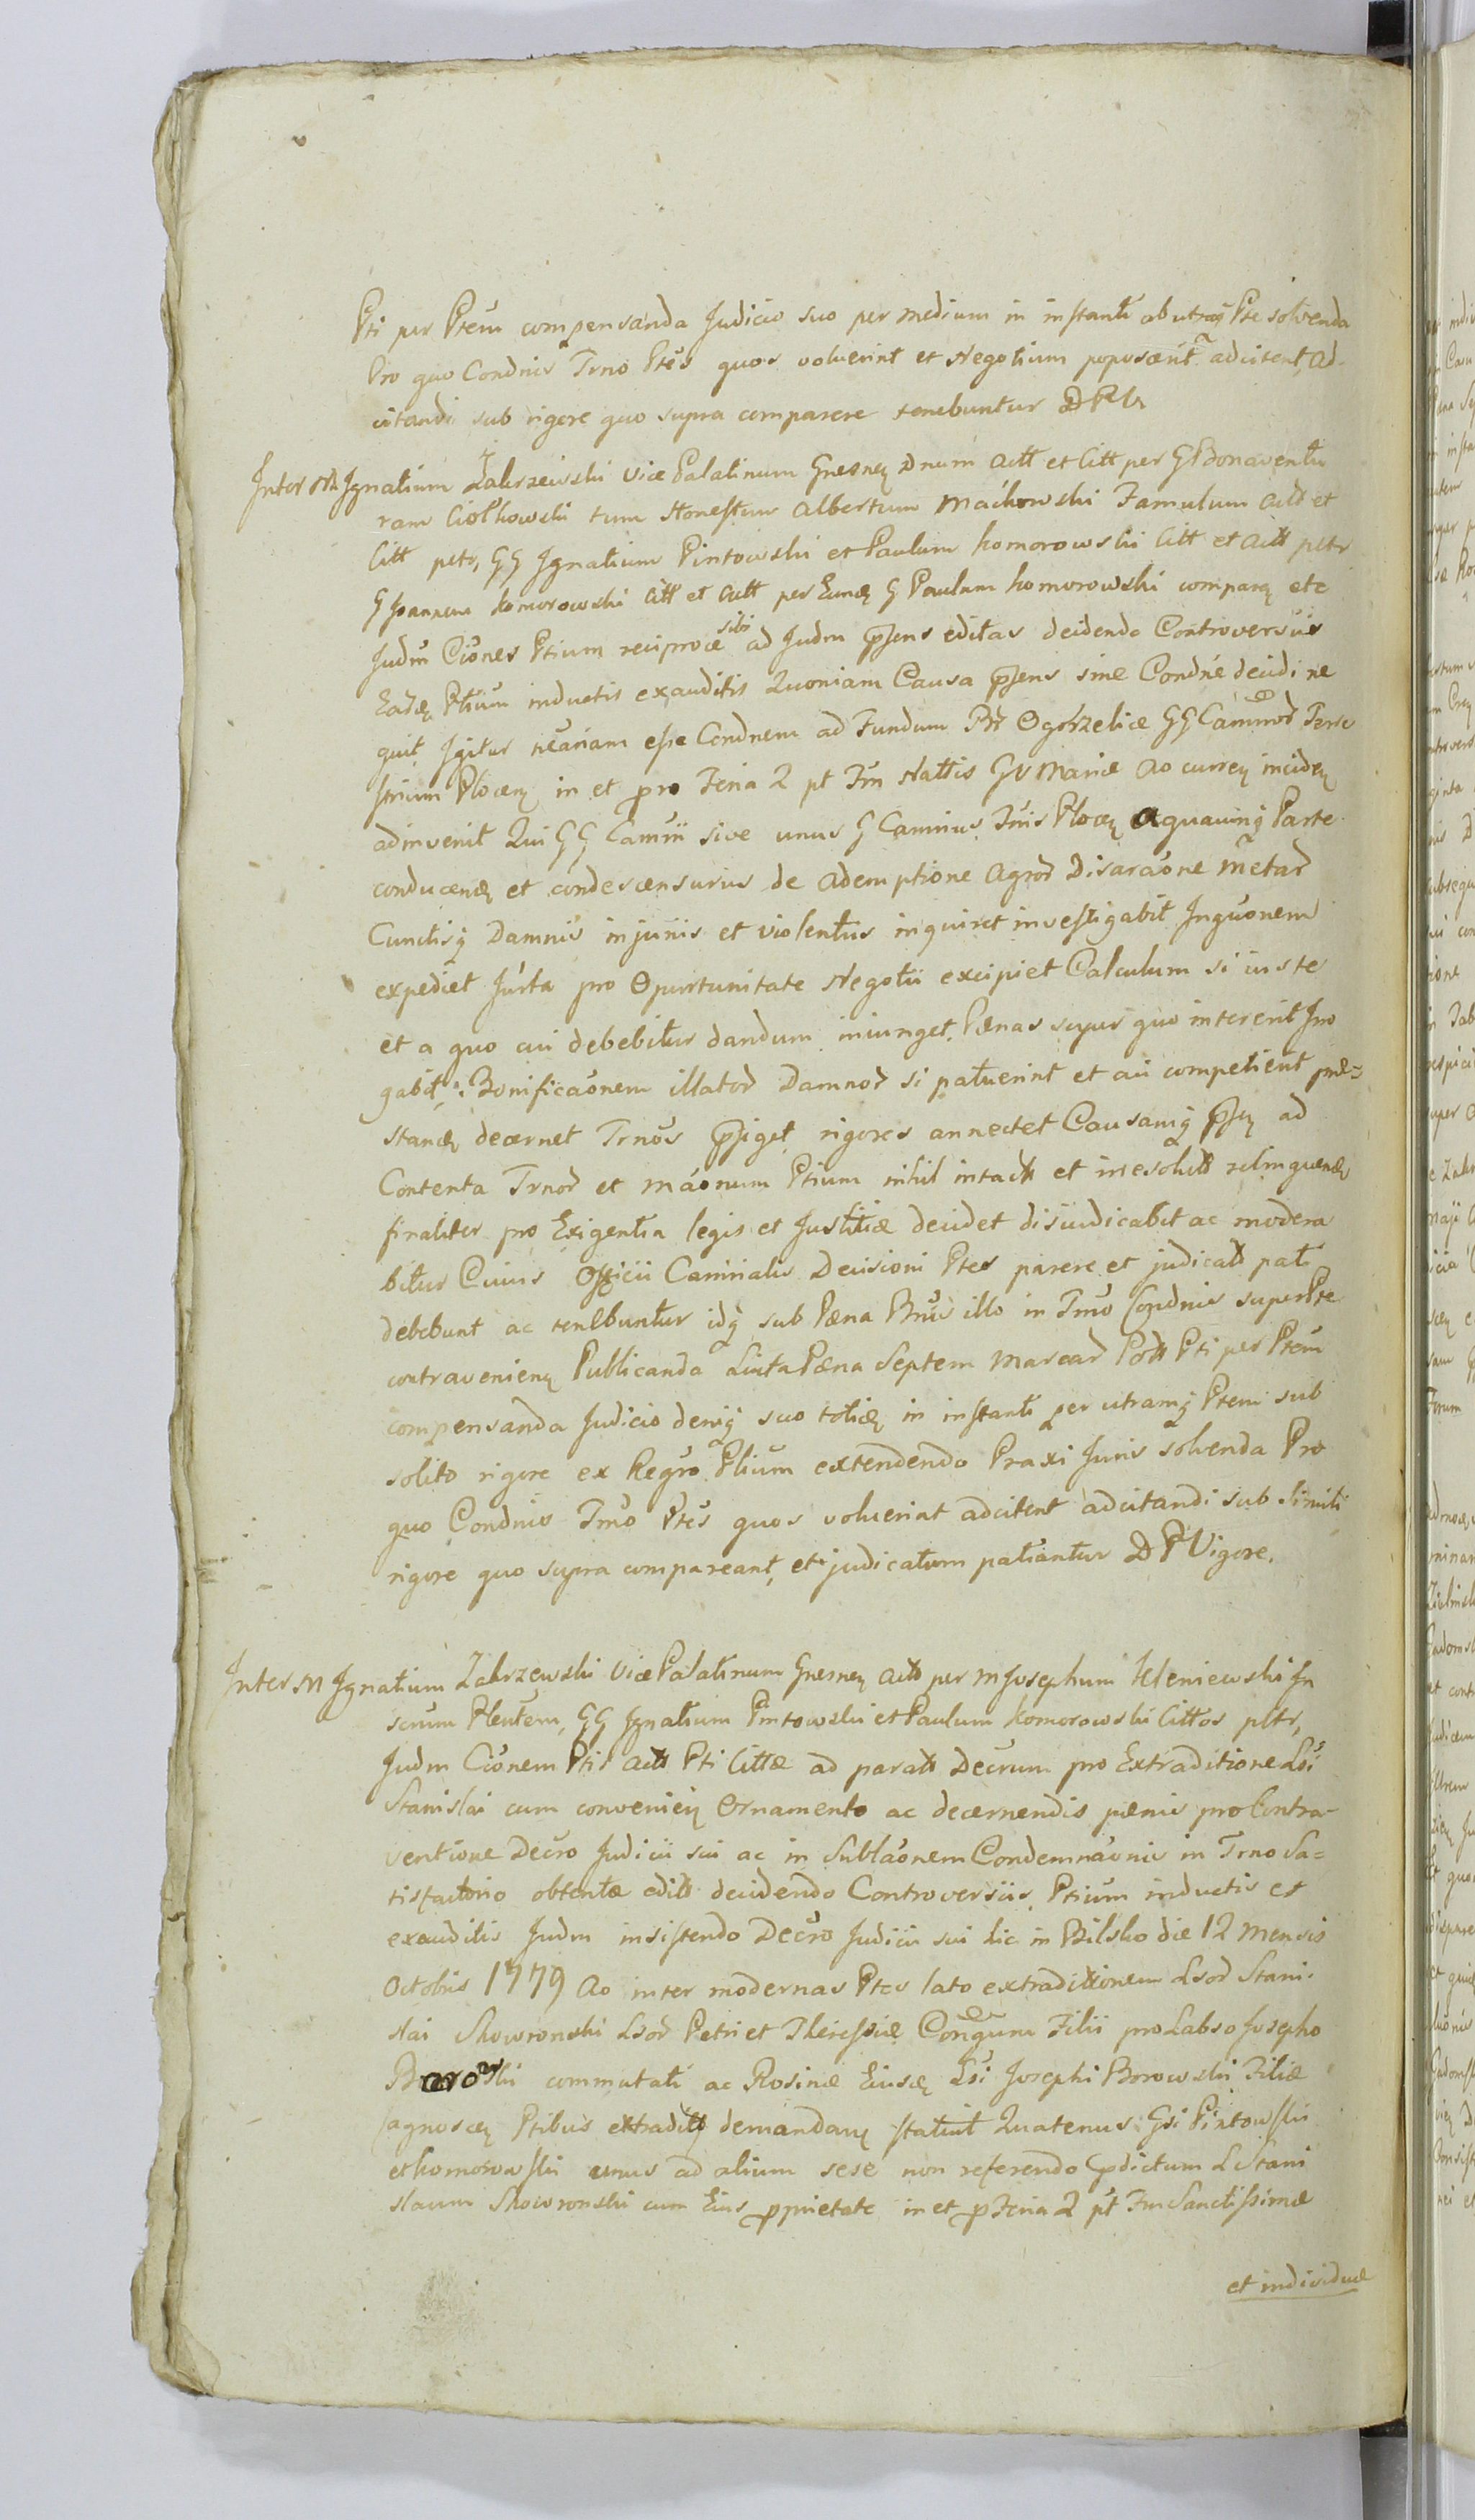 Pti per Ptem compensanda Judicio suo per medium in instanti ab utraq Pte solvenda
Pro quo Condnis Trno Ptes quos voluerint et Negotium poposcerit adcitent, ad-
citandi sub rigore quo supra comparere tenebuntur DPV
Inter M Ignatium Zakrzewski Vice Palatinum Gnesnen Dnum actt et Citt per G Bonaventu
ram Ciołkowski tum Honestum Albertum Maćkowski Famulum actt et
Citt petr, GG Ignatium Pintowski et Paulum Komorowski Citt et actt petr
G Joannem Komorowski Citt et actt per Eund G Paulum Komorowski comparen etc
Judm Ciones Ptium reciproce sibi ad Judm psens editas decidendo Controversiis
Earde Ptium inductis exauditis Quoniam Causa psens sine Condne decidi ne
quit Igitur necariam esse Condnem ad Fundum Bor Ogorzelice GG Cammod Terre
strium Plocen in et pro Feria 2 pt Fm Nattis GV Mariæ Ao curren inciden
adinvenit Qui GG Camrii sive unus G Camrius Tris Plocen a quavis Parte
conducend et condescensurus de ademptione Agror Disraone Metar
Cunctisq Damnis injuriis et violentiis inquiret investigabit Inquonem
expediet Jurta pro Oportunitate Negotii excipiet Calculum si iuste
et a quo cui debebitur dandum iniunget, Pænas super quo intererit Irro
gabit, Bonificaonem illator Damnor si patuerint et cui competient præ-
standen decernet Trnos psiget, rigores annectet Causamq psen ad
Contenta Trnor et maonum Ptium nihil intactt et irresolutt relinquende
finaliter pro Exigentia legis et Justitiæ decidet disiudicabit ac modera
bitur Cuius Officii Camrialis Decisioni Ptes parere et judicatt pati
debebunt ac tenebuntur idq sub Pæna Bnis illo in Trno Condnis super Pte
contravenien Publicanda Luita Pæna Septem Marcar Pottt Pti per Ptem
compensanda Judicio deniq suo toties in instanti per utramq Ptem sub
solito rigore ex Regro Ptium extendendo Praxi Juris solvenda Pro
quo Condnis Trno Ptes quos voluerint adcitent adcitandi sub simili
rigore quo supra compareant, et judicatum patiantur DP Vigore.
Inter M Ignatium Zakrzewski Vice Palatinum Gnesnen actt per M Josephum Kleniewski In
scrum Plentem, GG Ignatium Pintowski et Paulum Komorowski Cittos petr,
Judm Cionem Ptis actt Pti Cittæ ad paratt Decrum pro Extraditione Lsi
Stanislai cum convenien Ornamento ac decernendis pænis pro Contra-
ventione Decro Judicii sui ac in Sublaonem Condemnaonis in Trno Sa-
tisfactorio obtentæ editt decidendo Controversiis Ptium inductis et
exauditis Judm insistendo Decro Judicii sui hic in Bilsko die 12 Mensis
Octobris 1779 Ao inter modernas Ptes lato extraditionem Lsor Stani-
slai Skowronski Lsor Petri et Theressiæ Congum Filii pro Labso Josepho
Borowski commutati ac Rosinæ Eiusd Lsi Josephi Borowski Filiæ
agnoscen Ptibus extraditt demandan statuit Quatenus Gsi Pintowski
et Komorowski unus ad alium sese non referendo pdictum L Stani
slaum Skowronski cum Eius pprietate in et p Feria 2 pt Fm Sanctissimæ
et individuæ